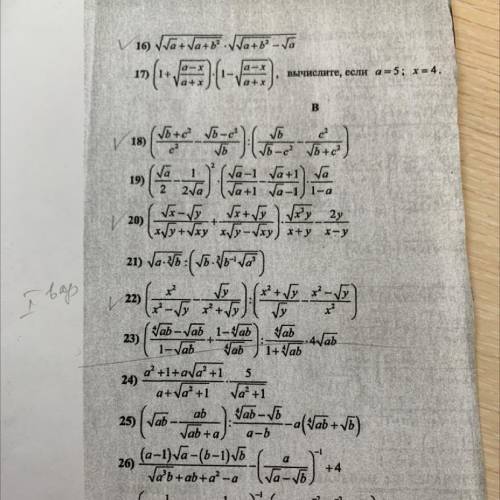 16) √(√a+√(a+b²)) · √(√(a+b²)−√a)
17) (1+√((a−x)/(a+x)))·(1−√((a−x)/(a+x))), вычислите, если a=5; x=4.
B
18) ((√b+c²)/c² − (√b−c²)/√b):(√b/(√b−c²) − c²/(√b+c²))
19) (√a/2 − 1/(2√a))²·((√a−1)/(√a+1) − (√a+1)/(√a−1))·√a/(1−a)
20) ((√x−√y)/(x√y+√xy) + (√x+√y)/(x√y−√xy))·√(x³y)/(x+y) − 2y/(x−y)
21) √(a·∛b):(√b·∛(b⁻¹√a³))
I вар
22) (x²/(x²−√y) − √y/(x²+√y)):((x²+√y)/√y − (x²−√y)/x²)
23) ((∜ab−√ab)/(1−√ab) + (1−∜ab)/∜ab):∜ab/(1+∜ab)·4√ab
24) (a²+1+a√(a²+1))/(a+√(a²+1))·5/√(a²+1)
25) (√ab − ab/(√ab+a)):(∜ab−√b)/(a−b) − a(∜ab+√b)
26) ((a−1)√a−(b−1)√b)/(√(a³b)+ab+a²−a) − (a/(√a−√b))⁻¹ +4